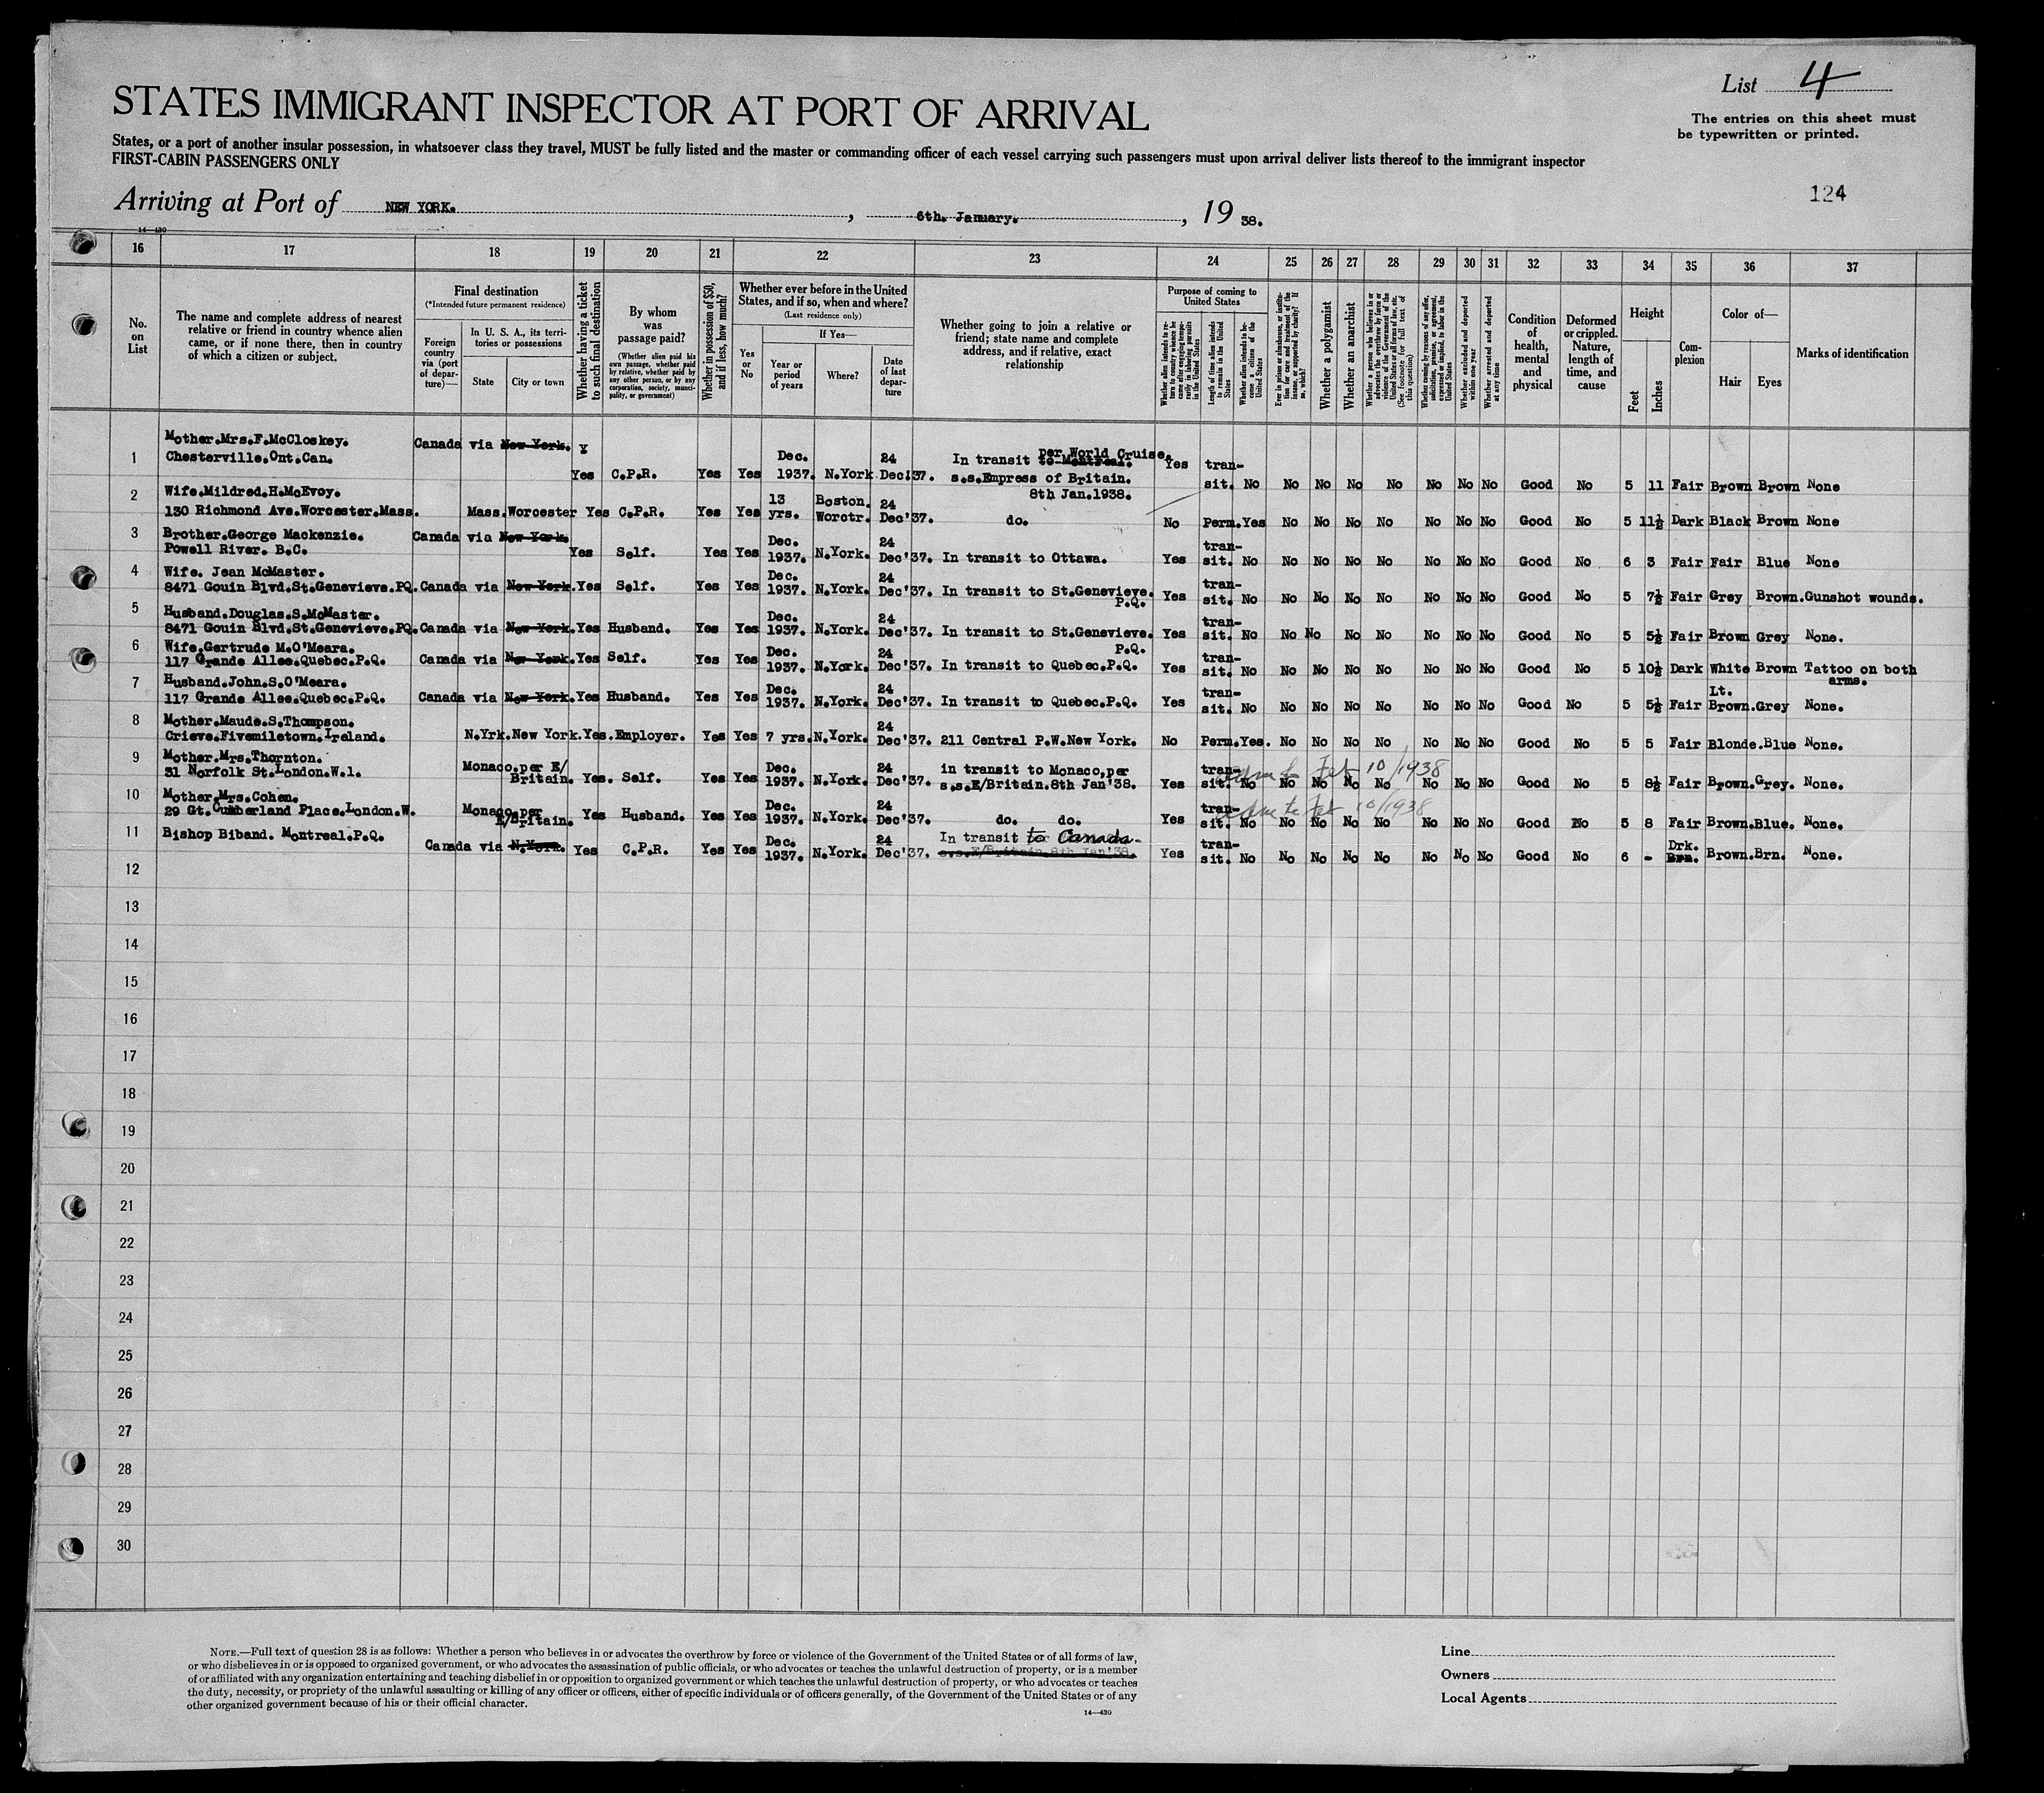 List 4
The entries on this sheet must
be typewritten or printed.
STATES IMMIGRANT INSPECTOR AT PORT OF ARRIVAL
States, or a port of another insular possession, in whatsoever class they travel, MUST be fully listed and the master or commanding officer of each vessel carrying such passengers must upon arrival deliver lists thereof to the immigrant inspector
FIRST-CABIN PASSENGERS ONLY
124
Arriving at Port of NEW YORK. , 6th. January. , 19 38.
14—430
16 17 18 19 20 21 22 23 24 25 26 27 28 29 30 31 32 33 34 35 36 37
No. on List
The name and complete address of nearest relative or friend in country whence alien came, or if none there, then in country of which a citizen or subject.
Final destination
(*Intended future permanent residence)
Foreign country via (port of departure)—
In U. S. A., its territories or possessions
State
City or town
Whether having a ticket to such final destination
By whom was passage paid?
(Whether alien paid his own passage, whether paid by relative, whether paid by any other person, or by any corporation, society, municipality, or government)
Whether in possession of $50, and if less, how much?
Whether ever before in the United States, and if so, when and where?
(Last residence only)
Yes or No
If Yes—
Year or period of years
Where?
Date of last departure
Whether going to join a relative or friend; state name and complete address, and if relative, exact relationship
Purpose of coming to United States
Whether alien intends to return to country whence he came after engaging temporarily in laboring pursuits in the United States
Length of time alien intends to remain in the United States
Whether alien intends to become a citizen of the United States
Ever in prison or almshouse, or institution for care and treatment of the insane, or supported by charity? If so, which?
Whether a polygamist
Whether an anarchist
Whether a person who believes in or advocates the overthrow by force or violence of the Government of the United States or all forms of law, etc. (See footnote for full text of this question)
Whether coming by reasons of any offer, solicitation, promise, or agreement, expressed or implied, to labor in the United States
Whether excluded and deported within one year
Whether arrested and deported at any time
Condition of health, mental and physical
Deformed or crippled. Nature, length of time, and cause
Height
Feet
Inches
Complexion
Color of—
Hair
Eyes
Marks of identification
1 Mother.Mrs.F.McCloskey. Chesterville.Ont.Can. Canada via New York. Y Yes C.P.R. Yes Yes Dec. 1937. N.York 24 Dec'37. In transit to Montreal. per World Cruise. s.s.Empress of Britain. 8th Jan.1938. Yes tran-sit. No No No No No No No No Good No 5 11 Fair Brown Brown None
2 Wife.Mildred.H.McEvoy. 130 Richmond Ave.Worcester.Mass. Mass.Worcester Yes C.P.R. Yes Yes 13 yrs. Boston. Worctr. 24 Dec'37. do. No Perm.Yes No No No No No No No Good No 5 11½ Dark Black Brown None
3 Brother.George Mackenzie. Powell River. B.C. Canada via New York. Yes Self. Yes Yes Dec. 1937. N.York. 24 Dec'37. In transit to Ottawa. Yes tran-sit. No No No No No No No No Good No 6 3 Fair Fair Blue None
4 Wife. Jean McMaster. 8471 Gouin Blvd.St.Genevieve.PQ. Canada via New York. Yes Self. Yes Yes Dec. 1937. N.York. 24 Dec'37. In transit to St.Genevieve. P.Q. Yes tran-sit. No No No No No No No No Good No 5 7½ Fair Grey Brown. Gunshot wounds.
5 Husband.Douglas.S.McMaster. 8471 Gouin Blvd.St.Genevieve.PQ. Canada via New York. Yes Husband. Yes Yes Dec. 1937. N.York. 24 Dec'37. In transit to St.Genevieve. P.Q. Yes tran-sit. No No No No No No No No Good No 5 5½ Fair Brown Grey None.
6 Wife.Gertrude M.O'Meara. 117 Grande Allee.Quebec.P.Q. Canada via New York. Yes Self. Yes Yes Dec. 1937. N.York. 24 Dec'37. In transit to Quebec.P.Q. Yes tran-sit. No No No No No No No No Good No 5 10½ Dark White Brown Tattoo on both arms.
7 Husband.John.S.O'Meara. 117 Grande Allee.Quebec.P.Q. Canada via New York. Yes Husband. Yes Yes Dec. 1937. N.York. 24 Dec'37. In transit to Quebec.P.Q. Yes tran-sit. No No No No No No No No Good No 5 5½ Fair Lt. Brown.Grey None.
8 Mother.Maude.S.Thompson. Crieve.Fivemiletown.Ireland. N.Yrk.New York.Yes. Employer. Yes Yes 7 yrs. N.York. 24 Dec'37. 211 Central P.W.New York. No Perm.Yes. No No No No No No No Good No 5 5 Fair Blonde.Blue None.
9 Mother.Mrs.Thornton. 31 Norfolk St.London.W.1. Monaco.per E/Britain. Yes. Self. Yes Yes Dec. 1937. N.York. 24 Dec'37. in transit to Monaco,per s.s.E/Britain.8th Jan'38. Yes tran-sit. No No No No No No No No Good No 5 8½ Fair Brown.Grey. None.
Feb 10/1938
10 Mother.Mrs.Cohen. 29 Gt.Cumberland Place.London.W. Monaco.per E/Britain. Yes Husband. Yes Yes Dec. 1937. N.York. 24 Dec'37. do. do. Yes tran-sit. No No No No No No No No Good No 5 8 Fair Brown.Blue. None.
Feb 10/1938
11 Bishop Biband. Montreal.P.Q. Canada via N.York. Yes C.P.R. Yes Yes Dec. 1937. N.York. 24 Dec'37. In transit to Canada. s.s.E/Britain.8th Jan'38. Yes tran-sit. No No No No No No No No Good No 6 - Drk. Brn. Brown.Brn. None.
12
13
14
15
16
17
18
19
20
21
22
23
24
25
26
27
28
29
30
NOTE.—Full text of question 28 is as follows: Whether a person who believes in or advocates the overthrow by force or violence of the Government of the United States or of all forms of law,
or who disbelieves in or is opposed to organized government, or who advocates the assassination of public officials, or who advocates or teaches the unlawful destruction of property, or is a member
of or affiliated with any organization entertaining and teaching disbelief in or opposition to organized government or which teaches the unlawful destruction of property, or who advocates or teaches
the duty, necessity, or propriety of the unlawful assaulting or killing of any officer or officers, either of specific individuals or of officers generally, of the Government of the United States or of any
other organized government because of his or their official character.
14—430
Line
Owners
Local Agents